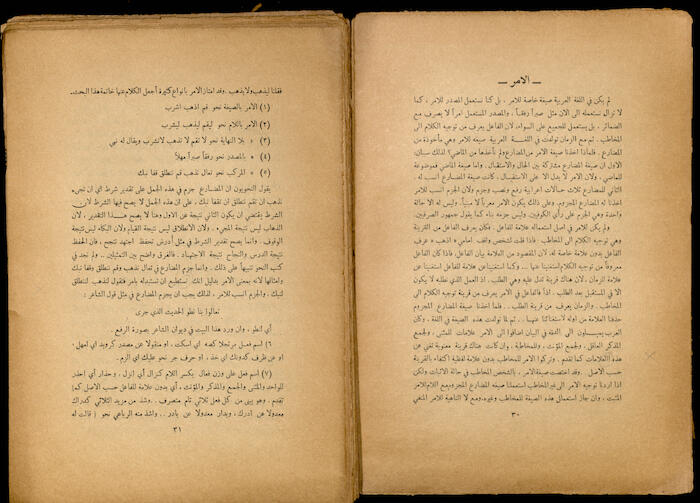 ـ الامر ـ
لم يكن في اللغة العربية صيغة خاصة للامر ، بل كنا نستعمل المصدر للامر ، كما
لا نزال نستعمله الى الان مثل صبراً ورفقاً ، والمصدر المستعمل امراً لا يصرف مع
الضمائر ، بل يستعمل للجميع على السواء ، لان الفاعل يعرف من توجيه الكلام الى
المخاطب . ثم مع الزمان تولدت في اللغـــة العربية صيغة للامر وهي مأخوذة من
المضارع . فلماذا اخذنا صيغة الامر من المضارع ولم نأخذها من الماضي ؟ لذلك سببان
الاول ان صيغة المضارع مشتركة بين الحال والاستقبال . واما صيغة الماضي فموضوعة
للماضي . ولان الامر لا يدل الا على الاستقبال ، كانت صيغة المضارع انسب له .
الثاني للمضارع ثلاث حالات اعرابية رفع ونصب وجزم ولان الجزم انسب للامر
اخذنا له المضارع المجزوم وعلى ذلك يكون الامر معرباً لا مبنياً . وليس له الا حالة
واحدة وهي الجزم على رأي الكوفيين . وليس جزمه بناء كما يقول جمهور الصرفيين .
ولم يكن للامر في اصل استعماله علامة للفاعل . فكان يعرف الفاعل من القرينة
وهي توجيه الكلام الى المخاطب فاذا قلت لشخص واقف امامي « اذهب » عرف
الفاعل بدون علامة خاصة له . لان المقصود من العلامة بيان الفاعل . فاذا كان الفاعل
معروفاً من توجيه الكلام استغنينا عنها ... وكما استغنينا عن علامة للفاعل استغنينا عن
علامة للزمان . لان هناك قرينة تدل عليه وهي الطلب . اذ العمل الذي نطلبه لا يكون
الا في المستقبل بعد الطلب . اذاً فالفاعل في الامر يعرف من قرينة توجيه الكلام الى
المخاطب . والزمان يعرف من قرينة الطلب .. فلما اخذنا صيغة المضارع المجزوم
حذفنا العلامة من اوله لاستغنائنا عنها .. ثم لما تولدت هذه الصيغة في اللغة . وكان
العرب يميـــلون الى الدقة في البيان اضافوا الى الامر علامات للمثنى ، ولجمع
المذكر العاقل . ولجمع المؤنث . وللمخاطبة . وان كانت هناك قرينة معنوية تغني عن
هذه العلامات كما تقدم . وتركوا الامر للمخاطب بدون علامة لفظية اكتفاء بالقرينة
حسب الاصل . وقد اختصت صيغة الامر ، بالشخص المخاطب في حالة الاثبات ولكن
اذا اردنا توجيه الامر الى غير المخاطب استعملنا صيغة المضارع المجزوم مع اللام للامر
المثبت ، وان جاز استعمالي هذه الصيغة للمخاطب وغيره . ومع لا الناهية للامر المنفي
٣٠
فقلنا ليذهب ولا يذهب . وقد امتاز الامر بانواع كثيرة أجعل الكلام عنها خاتمة هذا البحث.
(١) الامر بالصيغة نحو قم اذهب اشرب
(٢) الامر باللام نحو ليقم ليذهب ليشرب
(٣) « بلا النهاية نحو لا تقم لا تذهب لا تشرب ويقال له نهي
(٤) « بالمصدر نحو رفقاً صبراً مهلاً
(٥) « المركب نحو تعال نذهب قم ننطلق قفا نبك
يقول النحويون ان المضـارع جزم في هذه الجمل على تقدير شرط اي ان تجيء
نذهب ان تقم ننطلق ان تقفا نبك . على ان هذه الجمل لا يصح فيها الشرط لان
الشرط يقتضي ان يكون الثاني نتيجة عن الاول وهنا لا يصح هـــذا التقدير ، لان
الذهاب ليس نتيجة المجيء . ولان الانطلاق ليس نتيجة القيام ولان البكاء ليس نتيجة
الوقوف . وانما يصح تقدير الشرط في مثل أدرس تحفظ اجتهد تنجح ، فان الحفظ
نتيجة الدرس والنجاح نتيجة الاجتهاد . فالفرق واضح بين التمثيلين . ولم نجد في
كتب النحو تنبيهاً على ذلك . وانما جزم المضارع في تعال نذهب وقم ننطلق وقفا نبك
وامثالها لانه بمعنى الامر بدليل انك تستطيع ان تستبدله بامر فتقول لنذهب لننطلق
لنبك . والجزم انسب للامر . لذلك يجب ان يجزم المضارع في مثل قول الشاعر :
تعالوا بنا نطو الحديث الذي جرى
أي لنطو . وان ورد هذا البيت في ديوان الشاعر بصورة الرفع .
٦) اسم فعل مرتجلا كصه اي اسكت . او منقولا عن مصدر كرويد اي امهل ،
او عن ظرف كدونك اي خذ ، او حرف جر نحو عليك اي الزم .
(٧) اسم فعل على وزن فعال بكسر اللام كنزال أي انزل . وحذار أي احذر
للواحد والمثنى والجمع والمذكر والمؤنث ، أي بدون علامة للفاعل حسب الاصل كما
تقدم . وهو يبنى من كل فعل ثلاثي تام متصرف .. وشذ من مزيد الثلاثي كدراك
معدولا عن ادرك ، وبدار معدولا عن بادر .. واشذ منه الرباعي نحو ( قالت له
٣١